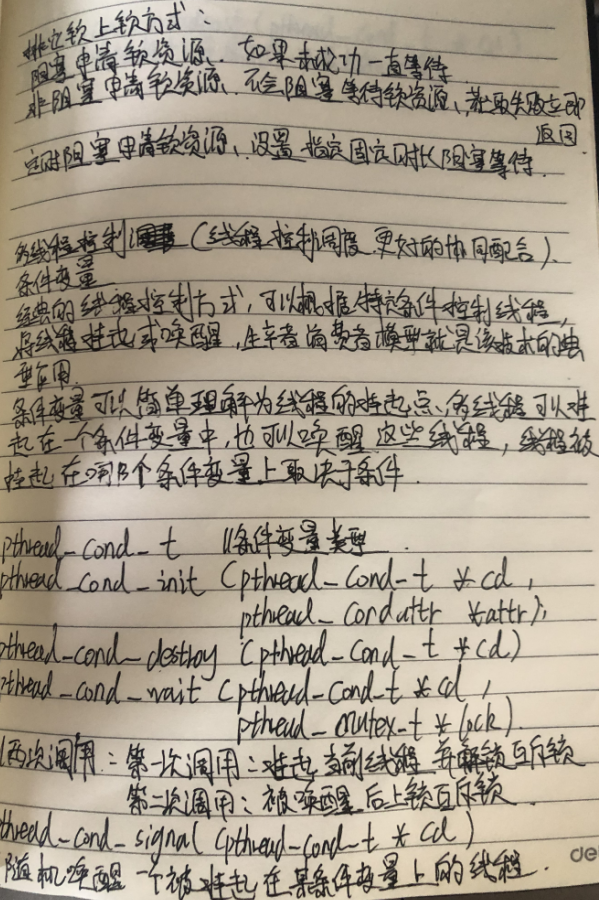 排它锁上锁方式：
阻塞申请锁资源、如果未成功一直等待
非阻塞申请锁资源、不会阻塞等待锁资源、获取失败立即
返回
定时阻塞申请锁资源、设置指定固定时长阻塞等待.
多线程控制调度（线程控制调度 更好的协同配合）.
条件变量
经典的线程控制方式，可以根据特定条件控制线程，
将线程挂起或唤醒，生产者消费者模型就是该技术的典
型作用.
条件变量可以简单理解为线程的挂起点、多线程可以挂
起在一个条件变量中，也可以唤醒这些线程，线程被
挂起在哪个条件变量上取决于条件.
pthread_cond_t //条件变量类型.
pthread_cond_init (pthread_cond_t *cd,
pthread_condattr *attr);
pthread_cond_destroy (pthread_cond_t *cd)
pthread_cond_wait (pthread_cond_t *cd,
pthread_mutex_t *lock).
(两次调用：第一次调用：挂起当前线程 并解锁互斥锁
第二次调用：被唤醒后上锁互斥锁.
thread_cond_signal (pthread_cond_t *cd)
随机唤醒一个被挂起在某条件变量上的线程.
de